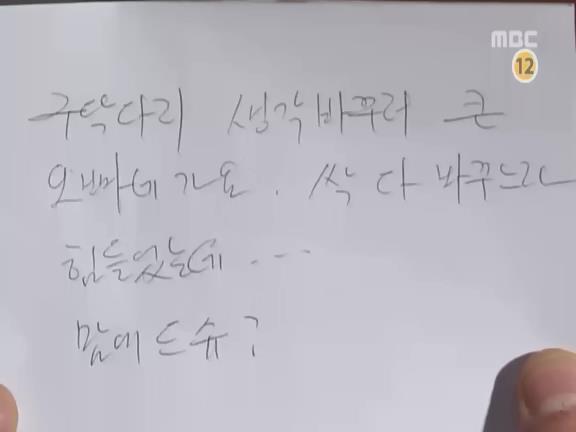 MBC
12
구닥다리 생각바꾸러 큰
오빠네 가요. 싹 다 바꾸느라
힘들었는데 ....
맘에 드슈?